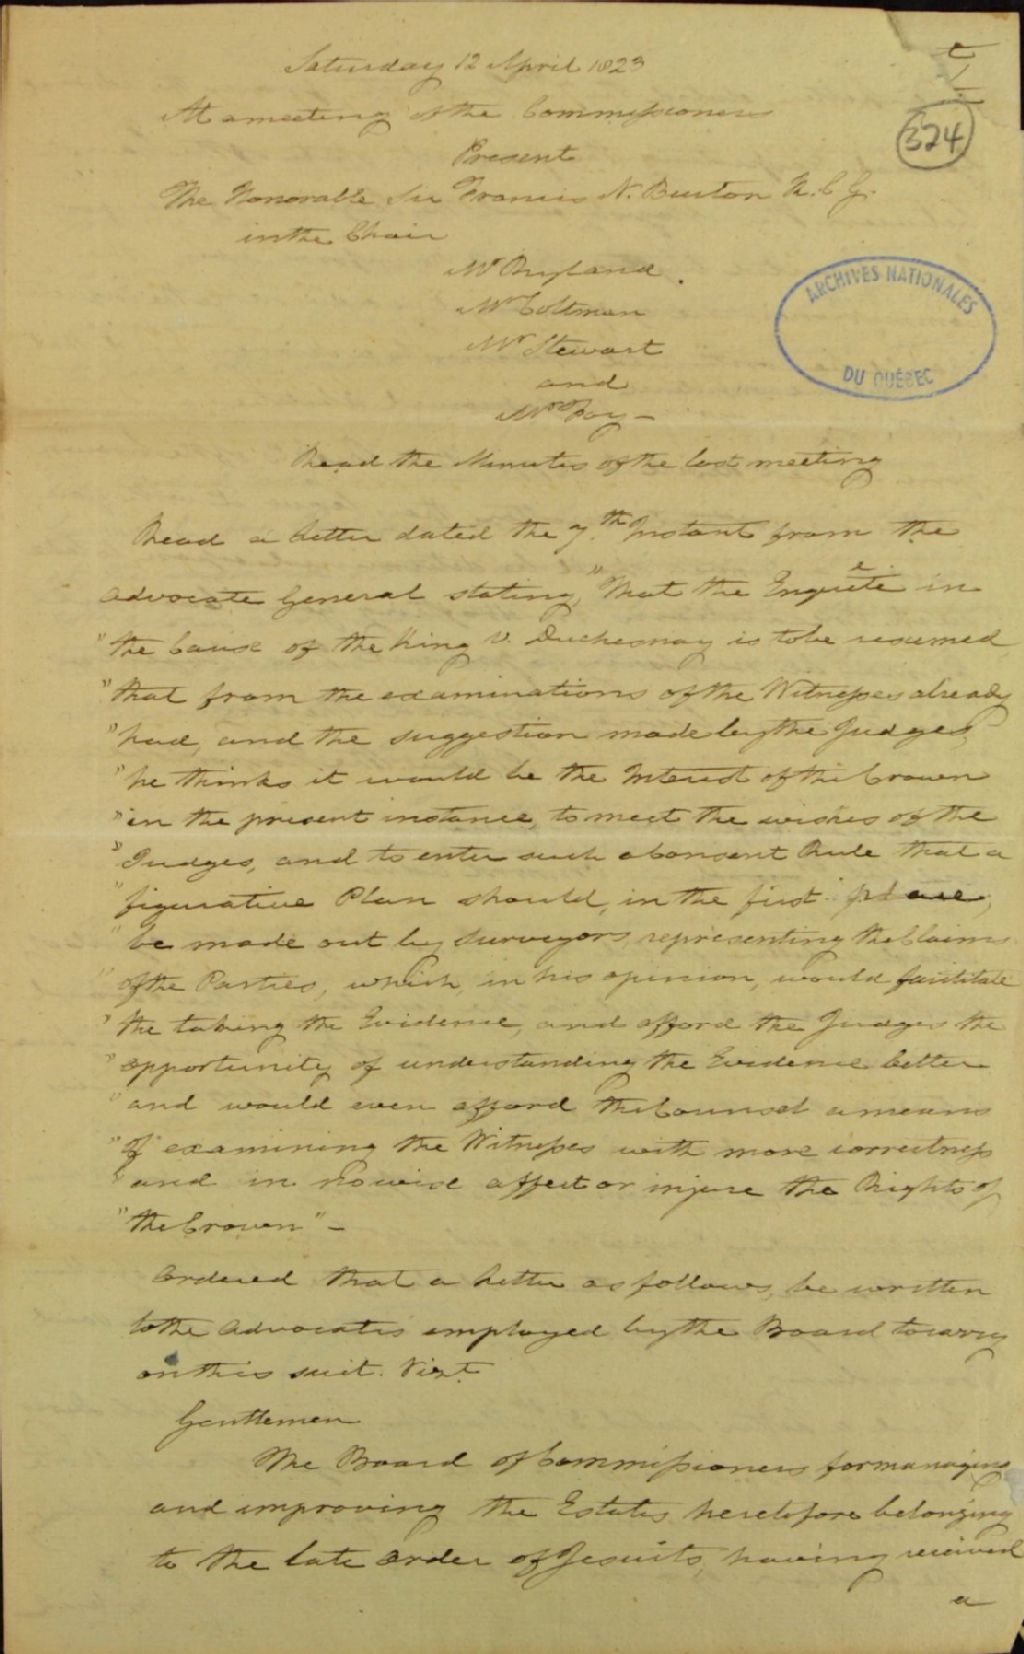 Saturday 12 April 1823
324
At a meeting of the Commissioners
Present
The Honorable Sir Francis N. Burton K.C.G.
in the Chair
Mr Ryland
Mr Coltman
Mr Stewart
and
Mr Foy –
ARCHIVES NATIONALES
DU QUÉBEC
Read the Minutes of the last meeting
Read a Letter dated the 7.th Instant from the
Advocate General stating, "That the Enquête in
"the Cause of the King v. Duchesnay is to be resumed
"that from the examinations of the Witnesses already
"had, and the suggestion made by the Judges,
"he thinks it would be the Interest of the Crown
"in the present instance, to meet the wishes of the
"Judges, and to enter such a Consent Rule that a
"figurative Plan should, in the first place,
"be made out by Surveyors, representing the Claims
"of the Parties, which, in his opinion, would facilitate
"the taking the Evidence, and afford the Judges the
"opportunity of understanding the Evidence better
"and would even afford the Counsel a means
"of examining the Witnesses with more correctness
"and in no wise affect or injure the Rights of
"the Crown" –
Ordered that a Letter as follows, be written
to the Advocates employed by the Board to carry
on this suit. Vizt.
Gentlemen
The Board of Commissioners for managing
and improving the Estates heretofore belonging
to the late Order of Jesuits, having received
a